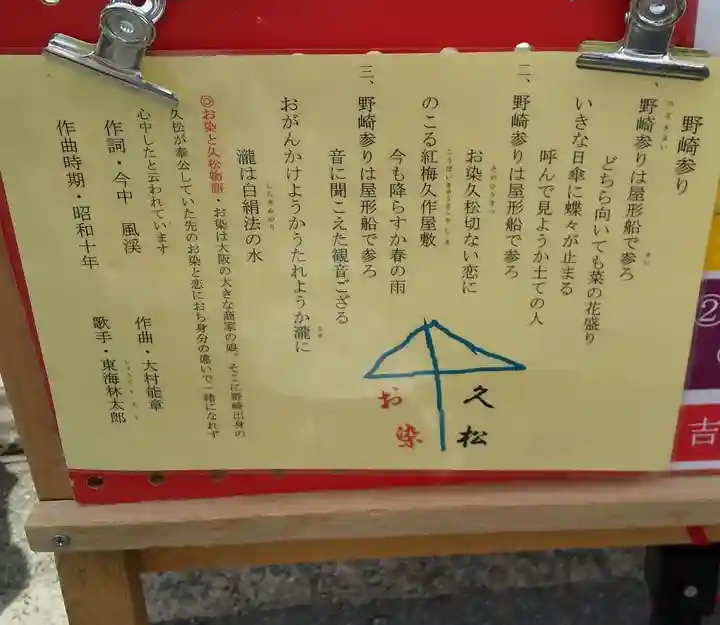 野崎参り
一、野崎参りは屋形船で参ろ
どちら向いても菜の花盛り
いきな日傘に蝶々が止まる
呼んで見ようか土ての人
二、野崎参りは屋形船で参ろ
お染久松切ない恋に
のこる紅梅久作屋敷
今も降らすか春の雨
三、野崎参りは屋形船で参ろ
音に聞こえた観音ござる
おがんかけようかうたれようか瀧に
瀧は白絹法の水
◎お染と久松物語・お染は大阪の大きな商家の娘。そこに野崎出身の
久松が奉公していた先のお染と恋におち身分の違いで一緒になれず
心中したと云われています
作詞・今中 風渓
作曲・大村能章
作曲時期・昭和十年
歌手・東海林太郎
久松
お染
②
吉